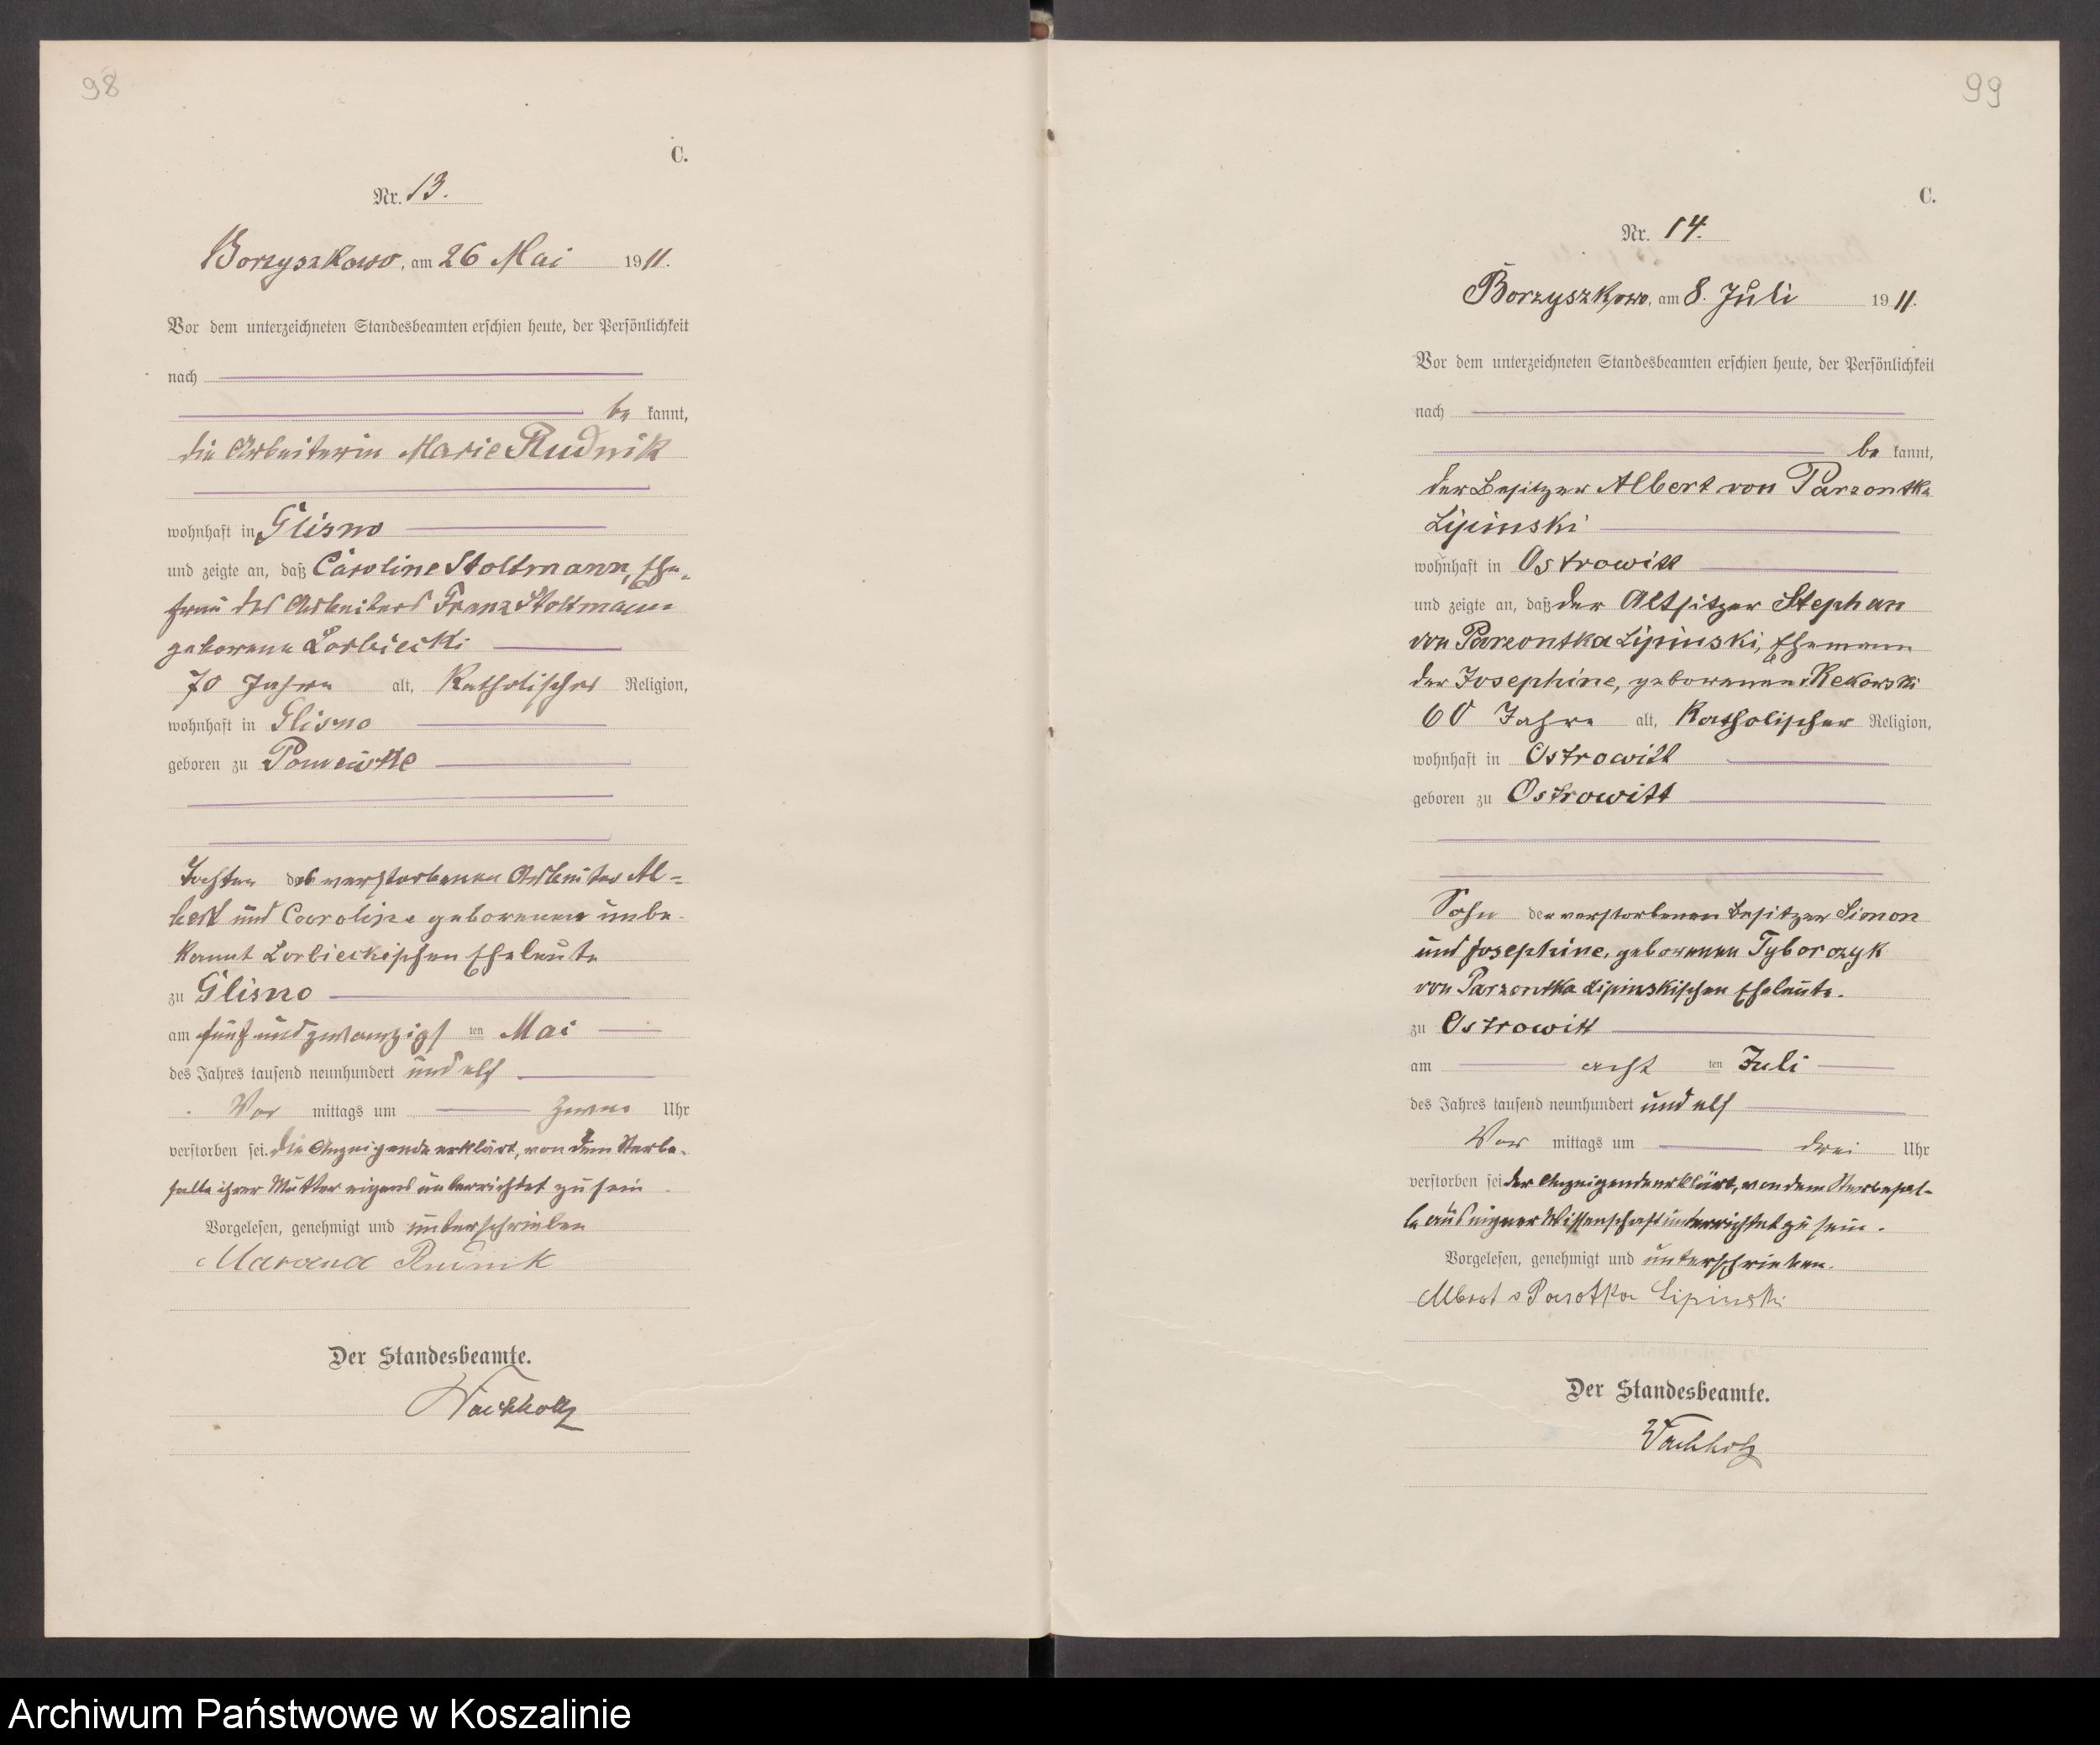 98
C.
Nr. 13.
Borzyszkowo, am 26 Mai 1911.
Vor dem unterzeichneten Standesbeamten erschien heute, der Persönlichkeit
nach
be kannt,
die Arbeiterin Marie Rudnik
wohnhaft in Glisno
und zeigte an, daß Caroline Stoltmann, Ehe-
frau des Arbeiters Franz Stoltmann
geborene Lorbiecki
70 Jahre alt, Katholischer Religion,
wohnhaft in Glisno
geboren zu
Tochter des verstorbenen Arbeiter Al-
bert und Caroline geborenen unbe-
kannt Lorbieckischen Eheleute
zu Glisno
am fünfundzwanzigsten Mai
des Jahres tausend neunhundert und elf
Vor mittags um Uhr
verstorben sei. Die Anzeigende erklärt, von dem Sterbe-
falle ihrer Mutter eigens unterrichtet zu sein
Vorgelesen, genehmigt und unterschrieben
Rudnik
Der Standesbeamte.
Wachholz
99
C.
Nr. 14.
Borzyszkowo, am 8. Juli 1911.
Vor dem unterzeichneten Standesbeamten erschien heute, der Persönlichkeit
nach
be kannt,
der Besitzer Albert von Parzontka
Lipinski
wohnhaft in Ostrowitt
und zeigte an, daß der Altsitzer Stephan
von Parzontka Lipinski, Ehemann
der Josephine, geborenen Rekowski
60 Jahre alt, Katholischer Religion,
wohnhaft in Ostrowitt
geboren zu Ostrowitt
Sohn der verstorbenen Besitzer Simon
und Josephine, geborenen Tyborczyk
von Parzontka Lipinskischen Eheleute.
zu Ostrowitt
am acht ten Juli
des Jahres tausend neunhundert und elf
Vor mittags um drei Uhr
verstorben sei der Anzeigende erklärt, von dem Sterbefal-
le aus eigner Wissenschaft unterrichtet zu sein.
Vorgelesen, genehmigt und unterschrieben.
Albert v Parotka Lipinski
Der Standesbeamte.
Wachholz
Archiwum Państwowe w Koszalinie